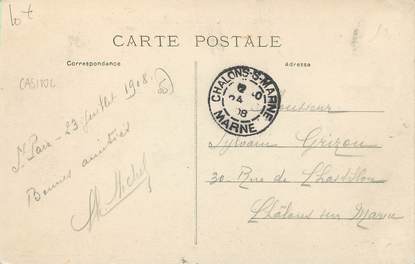 10t
CARTE POSTALE
Correspondance
Adresse
CASITOL
CHALONS-S-MARNE
24
08
MARNE
St Pair - 23 Juillet 1908.
Bonnes amitiés
Michel
Monsieur
Sylvain Grizou
30 Rue de Chastillon
Châlons sur Marne